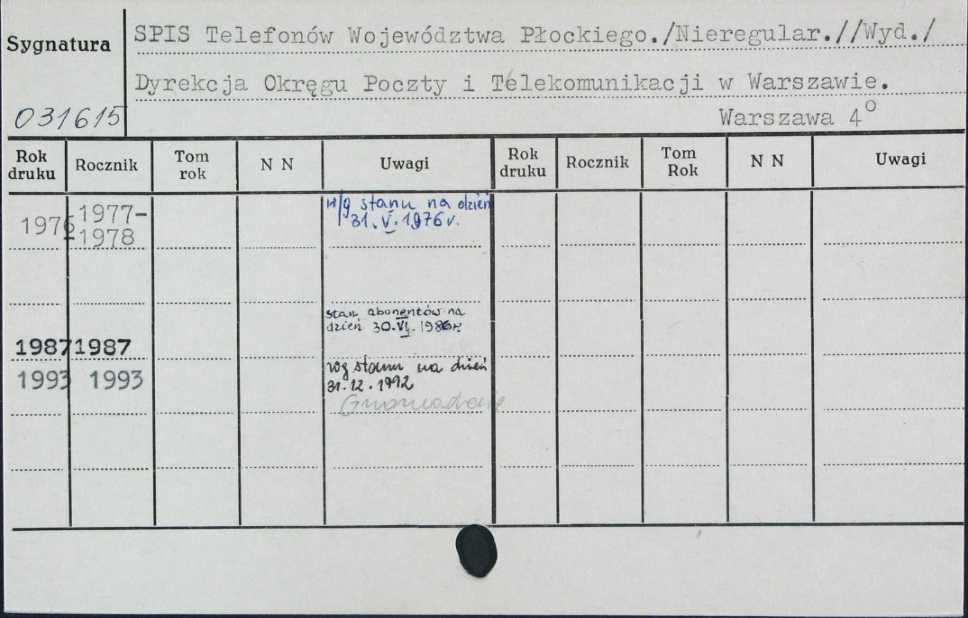 Sygnatura
031615
SPIS Telefonów Województwa Płockiego./Nieregular.//Wyd./
Dyrekcja Okręgu Poczty i Telekomunikacji w Warszawie.
Warszawa 4°
Rok druku Rocznik Tom rok N N Uwagi Rok druku Rocznik Tom Rok N N Uwagi
1976 1977-
1978
w/g stanu na dzień
31.V.1976r.
stan abonentów na
dzień 30.VI.1986r.
1987 1987
1993 1993
wg stanu na dzień
31.12.1992
Gromadzenie